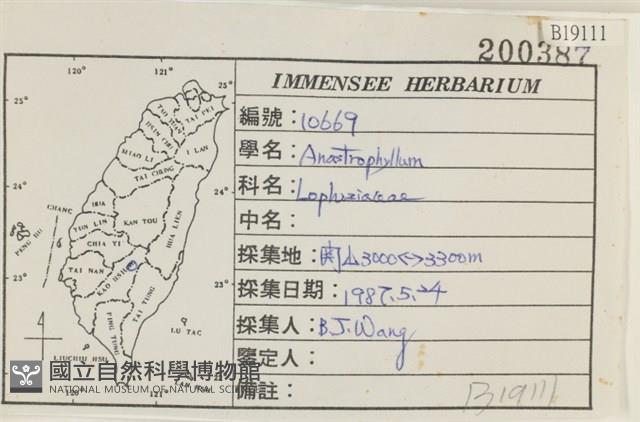 B19111
200387
IMMENSEE HERBARIUM
編號：10669
學名：Anastrophyllum
科名：Lophoziaceae
中名：
採集地：関山3000<->3300m
採集日期：1987.5.24
採集人：B.J.Wang
鑒定人：
備註：
B19111
120° 121°
25° 25°
TAI PEI
TAO YUAN
HSIN CHU
I LAN
MIAO LI
TAI CHUNG
24° 24°
CHANG HUA
HUA LIEN
KAN TOU
YUN LIN
PENG HU
CHIA YI
TAI NAN
KAO HSIUNG
23° 23°
TAI TUNG
PING TUNG
LU TAO
LIUCHIU HSU
120° 121°
國立自然科學博物館
NATIONAL MUSEUM OF NATURAL SCIENCE